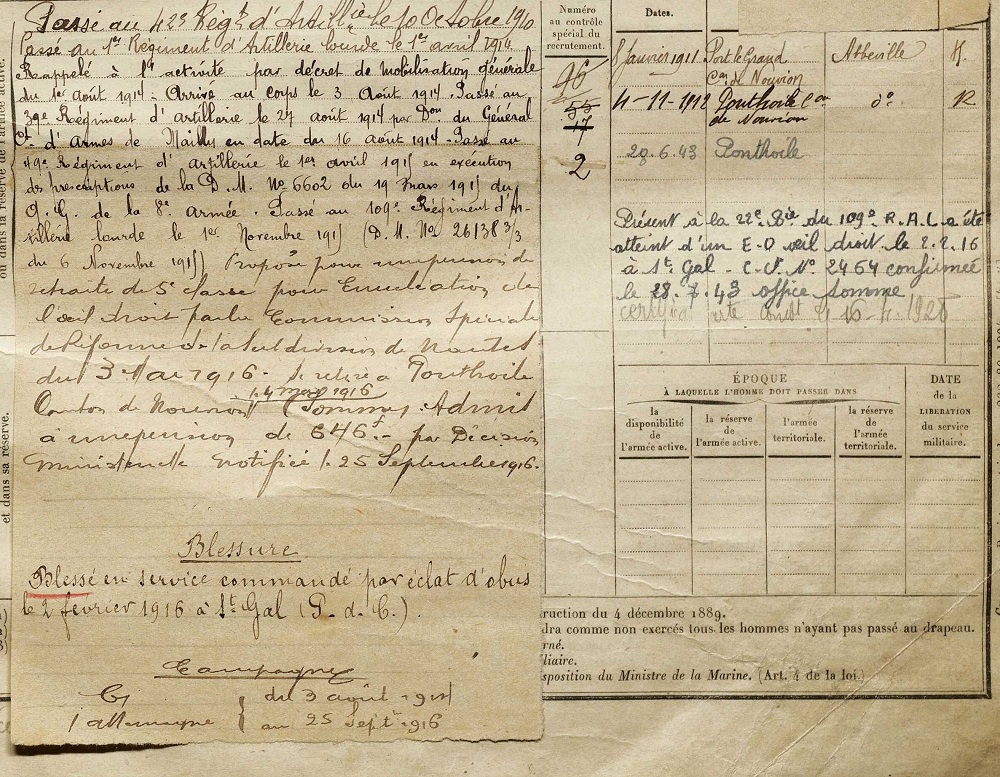 Passé au 42e Régt d'Artillie le 10 Octobre 1910
Passé au 1er Régiment d'Artillerie lourde le 1er avril 1914.
Rappelé à l'activité par décret de mobilisation générale
du 1er août 1914 - Arrivé au corps le 3 Août 1914. Passé au
39e Régiment d'artillerie le 27 août 1914 par Don du Général
Ct d'Armes de Mailly en date du 16 août 1914 - Passé au
49e Régiment d'artillerie le 1er avril 1915 en exécution
des prescriptions de la D. M. No 6602 du 19 mars 1915 du
G. G. de la 8e armée. Passé au 109e Régiment d'Ar-
tillerie lourde le 1er Novembre 1915 (D. M. No 26138 3/3
du 6 Novembre 1915) Proposé pour une pension de
retraite de 5e classe pour Enucléation de
l'œil droit par la Commission Spéciale
de Réforme de la Subdivision de Nantes
du 3 Mai 1916. Se retire à Ponthoile
1.4 mai 1916
Canton de Nouvion (Somme). Admis
à une pension de 646f - par Décision
Ministerielle notifiée l. 25 Septembre 1916.
Blessure
Blessé en service commandé par éclat d'obus
le 2 février 1916 à St. Gal (P. d. C.).
Campagne
C/
l'allemagne
du 3 août 1914
au 25 Sept 1916
ou dans la réserve de l'armée active.
et dans sa réserve.
Numéro
au contrôle
spécial du
recrutement.
Dates.
96
55
17
2
8 Janvier 1911 Port le Grand Abbeville R.
Con de Nouvion
4-11-1912 Ponthoile Con do R
de Nouvion
28.6.43 Ponthoile
Présent à la 22e Bie du 109e R.A.L a été
atteint d'un E-O œil droit le 2.2.16
à St. Gal - C.I. No. 2464 confirmée
le 28.7.43 office Somme
ÉPOQUE
À LAQUELLE L'HOMME DOIT PASSER DANS
la
disponibilité
de
l'armée active.
la réserve
de
l'armée active.
l'armée
territoriale.
la réserve
de
l'armée
territoriale.
DATE
de la
LIBÉRATION
du service
militaire.
ruction du 4 décembre 1889.
dra comme non exercés tous les hommes n'ayant pas passé au drapeau.
rné.
liaire.
sposition du Ministre de la Marine. (Art. 4 de la loi.)